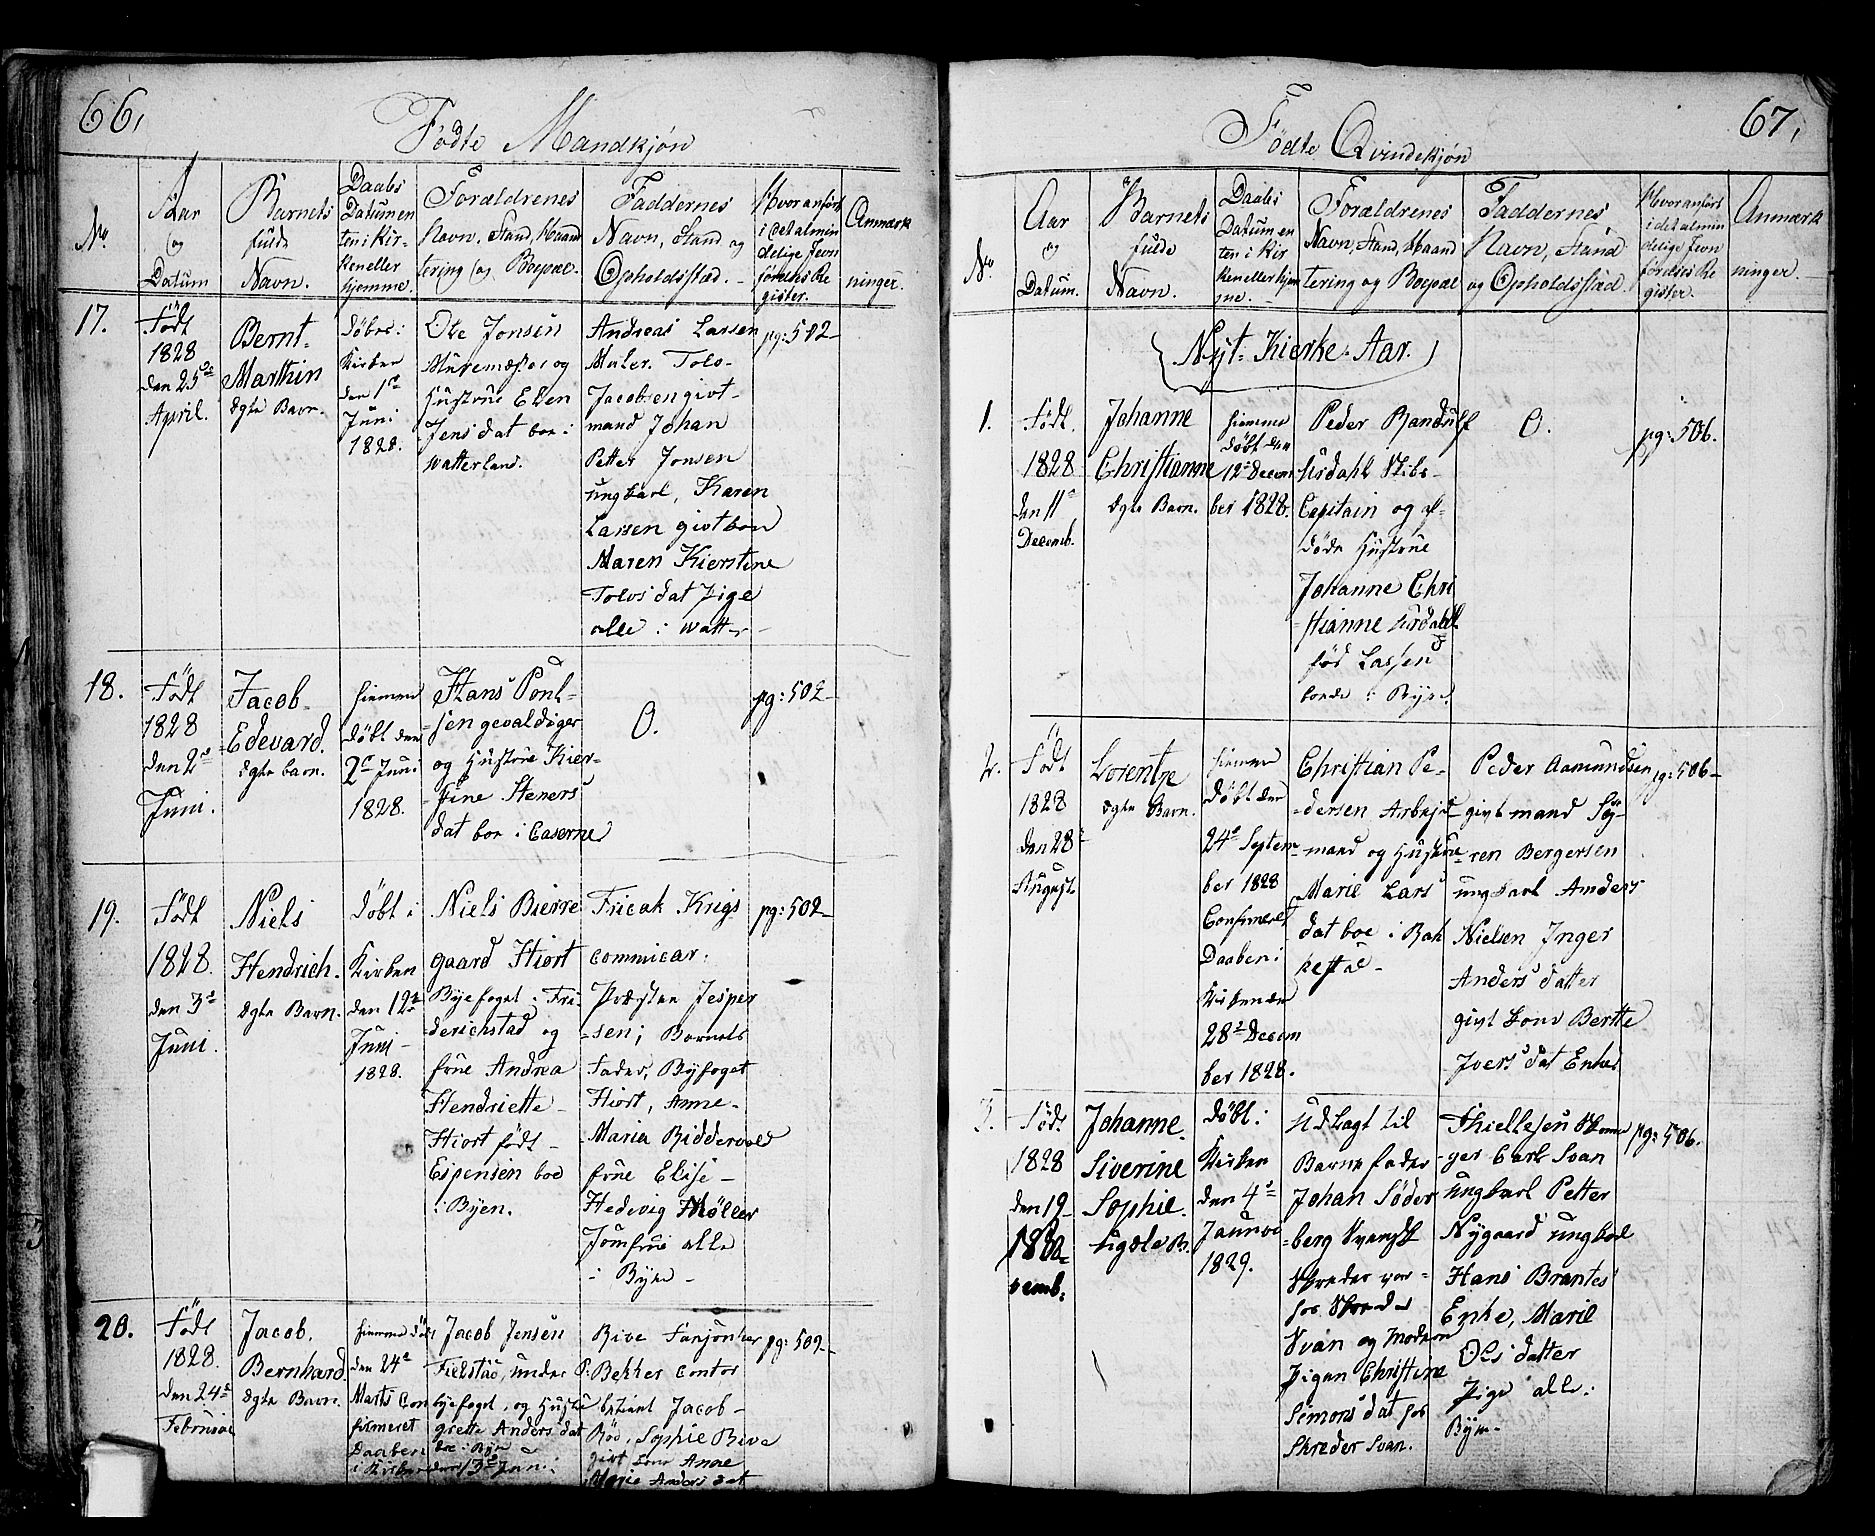 66,
Fødte Mandkjøn
No.
Aar
og
Datum
Barnets
fulde
Navn.
Daabs
Datum en
ten i Kir-
ken eller
hjemme.
Forældrenes
Navn, Stand, Haand
tering og Boepæl.
Faddernes
Navn, Stand og
Opholdsstæd.
Hvor anført
i det almin
delige Jevn
førelses Re
gister.
Anmærk
ninger.
17.
Født
1828
den 25de
April.
Bernt
Marthin
Ægte Barn.
Døbt i
Kirken
den 1ste
Juni
1828.
Ole Jonsen
Muremester og
Hustrue Ellen
Jens dat boe i
Watterland.
Andreas Larsen
Muler. Tolo-
Jacobsen givt-
mand Johan
Petter Jonsen
ungkarl, Karen
Larsen givt kone
Maren Kierstine
Tolvs dat Pige
alle i Watter-
pg: 502-
18.
Født
1828
den 2de
Juni.
Jacob-
Edevard.
Ægte barn.
hiemme
døbt den
2de Juni
1828.
Hans Poul-
sen gevaldiger
og Hustrue Kier-
stine Steners
dat boe i Caserne
O.
pg: 502-
19.
Født
1828.
den 3de
Juni.
Niels
Hendrich.
Ægte Barn.
Døbt i
Kirken
den 12te
Juni-
1828.
Niels Bierre
gaard Hiort
Byefoget i Fri
derichstad og
frue Andrea
Hendriette-
Hiort født-
Espensen boe
i Byen.
Frieak Krigs
commisar:
Præsten Jesper
-sen; Barnets
Fader, Byfoget
Hiort, Anne-
Maria Ridderwold
frue Elise-
Hedevig Møller
Jomfrue alle
i Byen-
pg: 502-
20.
Født
1828.
den 24de
Februar
Jacob.
Bernhard.
Ægte Barn.
hiemme døbt
den 24de
Marts Con
firmeret
Daaben
i Kirken den 13de Juni
Jacob Jensen
Fielstad, under
byefoget, og Hustrue
Grette Anders dat
boe i Byen
Rive Farjunker
Bekker Contor
betient Jacob-
Rød, Sophie Rive
givt kone Anne
Marie Anders dat
pg: 502-
67,
Fødte Qvindekjøn
No.
Aar
og
Datum.
Barnets
fulde
Navn.
Daabs
Datum en
ten i Kir
ken eller hjem
me.
Forældrenes
Navn, Stand, Haand
tering og Boepæl
Faddernes
Navn, Stand
og Opholdsstæd.
Hvor anført
i det almin
delige Jevn
førelses Re
gister.
Anmærk
ninger.
Nyt-Kierke-Aar.
1.
Født.
1828
den 11te
Decemb.
Johanne
Christianne
Ægte Barn.
hiemme
døbt den
12te Decem
ber 1828.
Peder Randulf
Urdahl Skibs-
Capitain og af-
døde Hustrue
Johanne Chri
stianne Urdahl
fød Lassen
boende i Byen.
O.
pg: 506.
2.
Født
1828
den 28de
August
Lorentze
Ægte Barn.
hiemme
Døbt den
24de Septem
ber 1828
Confirmeret
Daaben i
Kirken den
28de Decem
ber 1828.
Christian Pe-
-dersen Arbeids
-mand og Hustrue
Marie Lars
dat boe i Bak
kestal-
Peder Aamundsen
givt mand Sø-
-ren Bergersen
ungkarl Anders
Nielsen Inger
Anders datter
givt kone Berthe
Ivers dat Enke
pg: 506-
3.
Født
1828
den 19
vemb.
Johanne.
Siverine
Sophie.
Uægte B.
Døbt i
Kirken
den 4de
Januar
1829.
Udlagt til
Barne fader
Johan Søder
-berg Svensk
Skreder svan-
hos Skreder
Svan og Moderen
Pigen Christine
Simons dat hos
Skreder Svan.
Thiellesen
-ger Carl Svan
ungkarl Petter
Nygaard ungkarl
Hans Brantes
Enke, Marie
Ols datter
Pige alle i
Byen-
pg: 506.